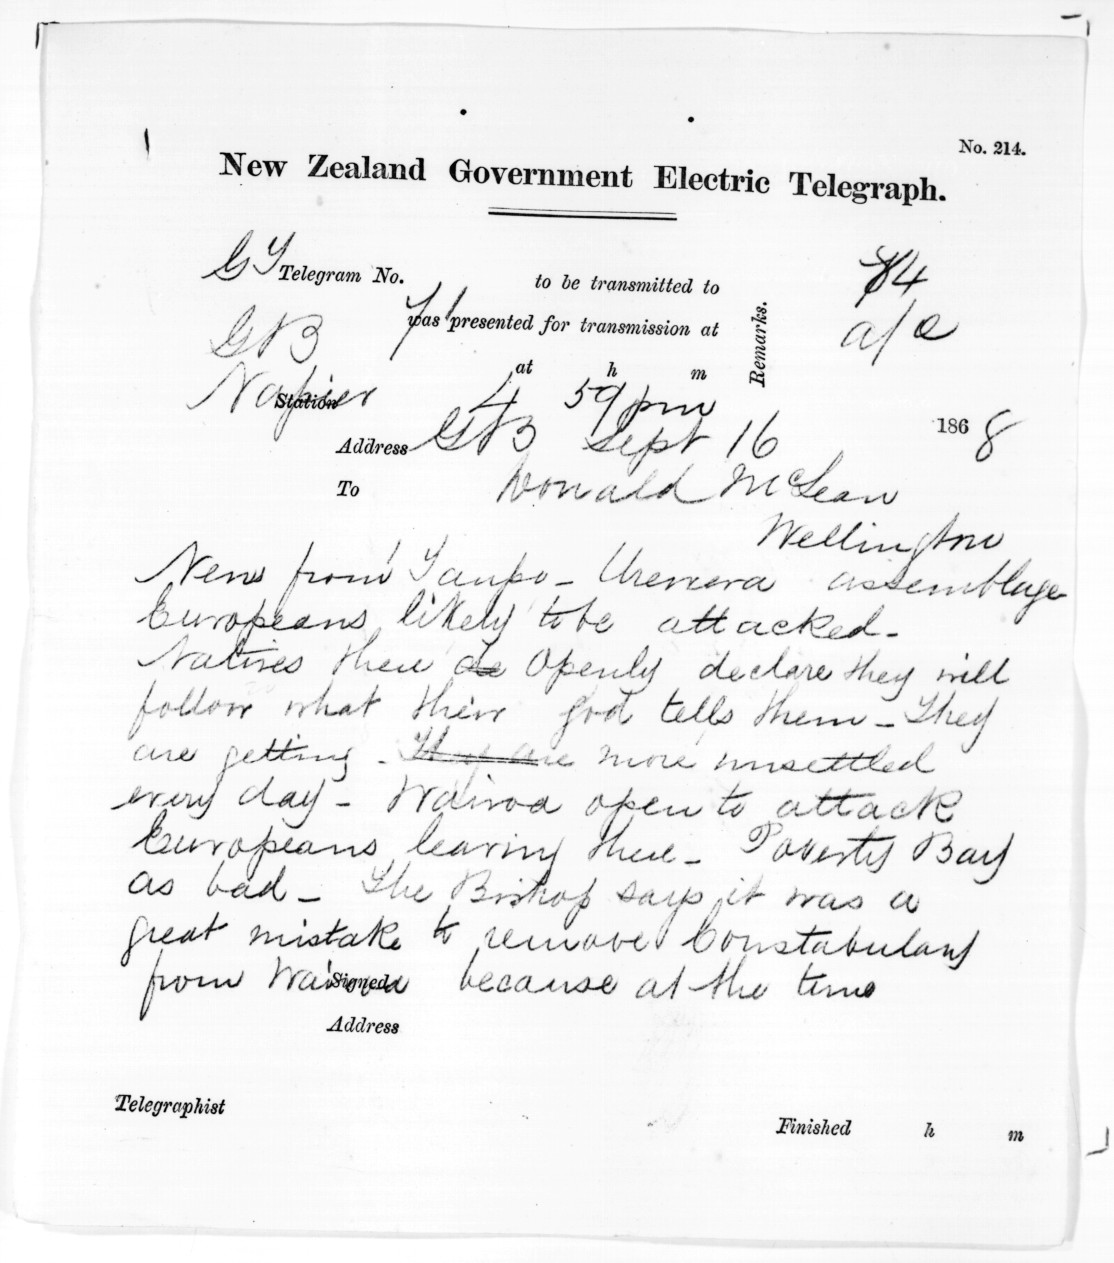 No. 214.
New Zealand Government Electric Telegraph.
GY Telegram No. to be transmitted to 84
GB 71 was presented for transmission at Remarks. a/c
at h m
Napier Station 4 59 pm
Address GB Sept 16 1868
To Donald McLean
Wellington
News from Taupo - Urewera assemblage
Europeans likely to be attacked -
Natives there openly declare they will
follow what their god tells them - They
are getting - They are more unsettled
every day - Wairoa open to attack
Europeans leaving there - Poverty Bay
as bad - The Bishop says it was a
great mistake to remove Constabulary
from Wairoa because at the time
Signed
Address
Telegraphist
Finished h m